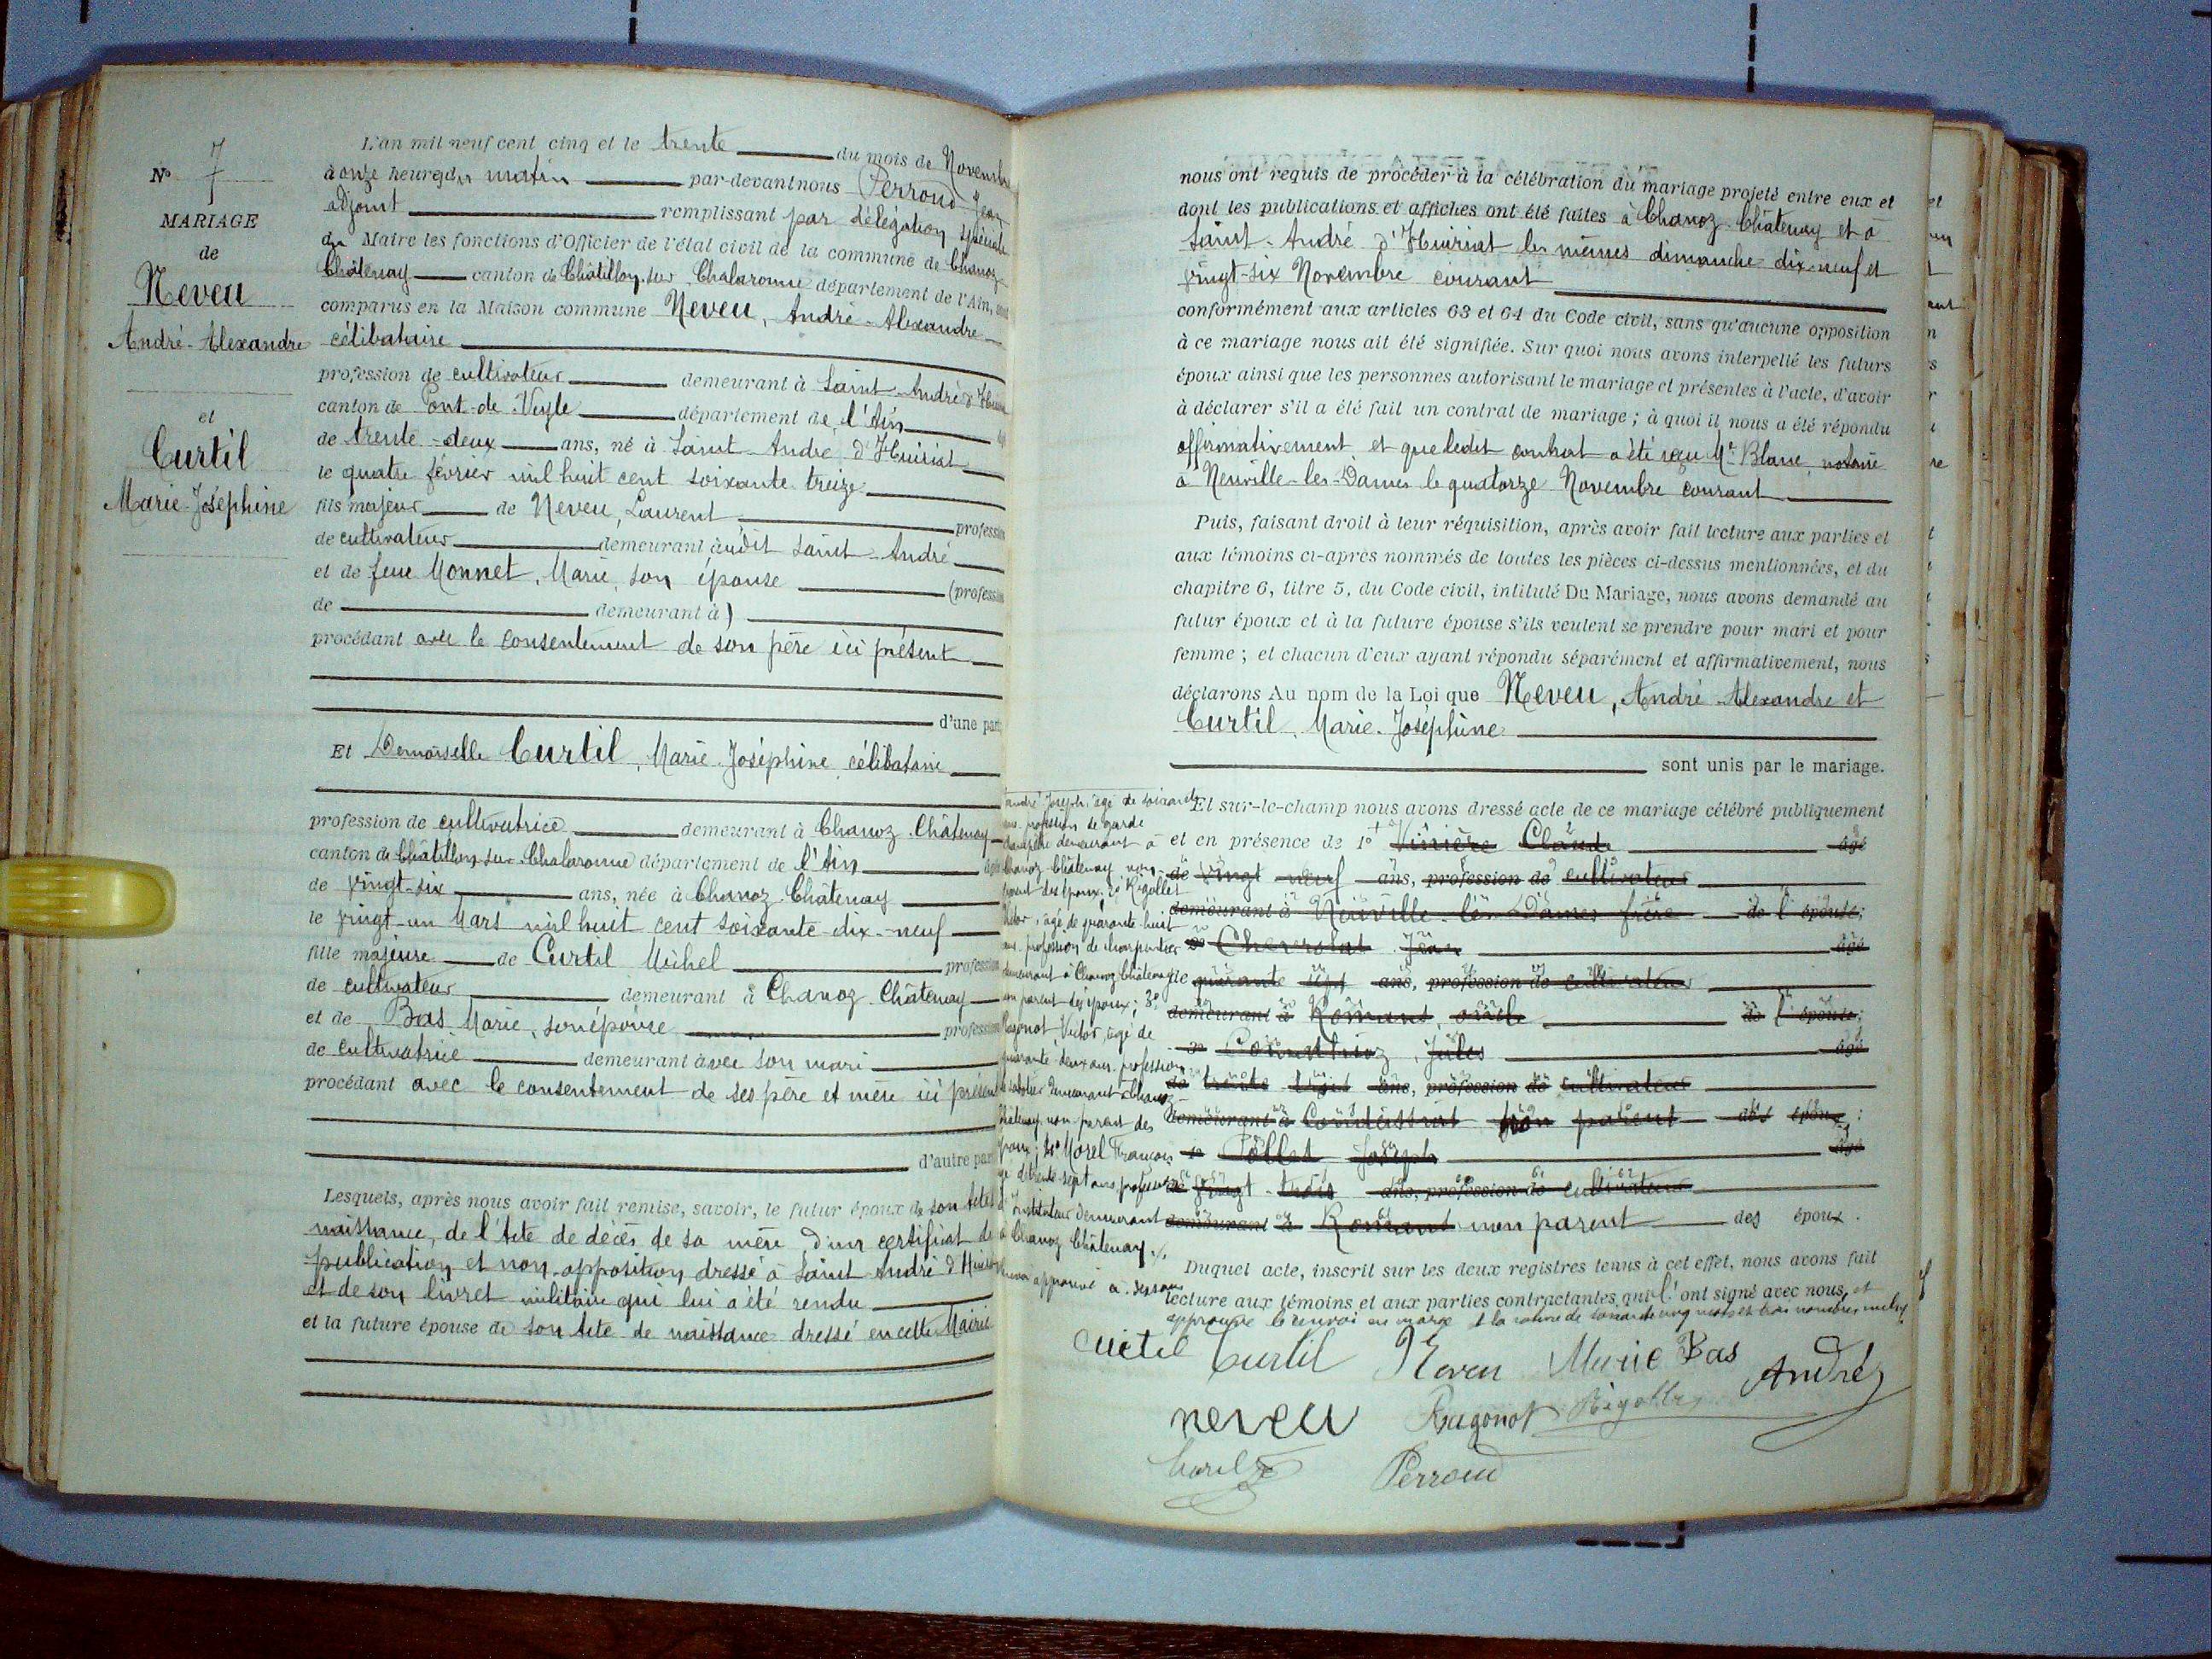 N° 7
MARIAGE
de
Neveu
André-Alexandre
et
Curtil
Marie-Joséphine
L'an mil neuf cent cinq et le trente du mois de Novembre
à onze heures du matin par-devant nous Perroud Jean
adjoint remplissant par délégation spéciale
du Maire les fonctions d'Officier de l'état civil de la commune de Chanoz-
Châtenay canton de Châtillon-sur-Chalaronne département de l'Ain, ont
comparus en la Maison commune Neveu, André-Alexandre
célibataire
profession de cultivateur demeurant à Saint-André d'Huiriat
canton de Pont-de-Veyle département de l'Ain
de trente-deux ans, né à Saint-André d'Huiriat
le quatre février mil huit cent soixante treize
fils majeur de Neveu, Laurent profession
de cultivateur demeurant àudit Saint-André
et de feue Monnet, Marie, son épouse (profession
de demeurant à)
procédant avec le consentement de son père ici présent
d'une part
Et Demoiselle Curtil, Marie-Joséphine, célibataire
profession de cultivatrice demeurant à Chanoz-Châtenay
canton de Châtillon-sur-Chalaronne département de l'Ain
de vingt-six ans, née à Chanoz-Châtenay
le vingt-un Mars mil huit cent soixante-dix-neuf
fille majeure de Curtil Michel profession
de cultivateur demeurant à Chanoz-Châtenay
et de Bas Marie, son épouse profession
de cultivatrice demeurant àvec son mari
procédant avec le consentement de ses père et mère ici présents
d'autre part
Lesquels, après nous avoir fait remise, savoir, le futur époux de son acte de
naissance, de l'acte de décès de sa mère, d'un certificat de
publication et non-opposition dressé à Saint-André d'Huiriat
et de son livret militaire qui lui a été rendu
et la future épouse de son acte de naissance dressé en cette Mairie
nous ont requis de procéder à la célébration du mariage projeté entre eux et
dont les publications et affiches ont été faites à Chanoz-Châtenay et à
Saint-André d'Huiriat les mêmes dimanche dix-neuf et
vingt-six Novembre courant
conformément aux articles 63 et 64 du Code civil, sans qu'aucune opposition
à ce mariage nous ait été signifiée. Sur quoi nous avons interpellé les futurs
époux ainsi que les personnes autorisant le mariage et présentes à l'acte, d'avoir
à déclarer s'il a été fait un contrat de mariage ; à quoi il nous a été répondu
affirmativement et que ledit contrat a été reçu Me Blanc, notaire
à Neuville-les-Dames le quatorze Novembre courant
Puis, faisant droit à leur réquisition, après avoir fait lecture aux parties et
aux témoins ci-après nommés de toutes les pièces ci-dessus mentionnées, et du
chapitre 6, titre 5, du Code civil, intitulé Du Mariage, nous avons demandé au
futur époux et à la future épouse s'ils veulent se prendre pour mari et pour
femme ; et chacun d'eux ayant répondu séparément et affirmativement, nous
déclarons Au nom de la Loi que Neveu, André-Alexandre et
Curtil, Marie-Joséphine
sont unis par le mariage.
Et sur-le-champ nous avons dressé acte de ce mariage célébré publiquement
et en présence de 1° Vinière Claude âgé
de vingt neuf ans, profession de cultivateur
demeurant à Neuville-les-Dames frère de l'épouse;
2° Jean âgé
de quarante sept ans, profession de cultivateur
demeurant à Romans, oncle de l'épouse;
3° Jules âgé
de trente trois ans, profession de cultivateur
demeurant à non parent des époux;
4° Pollet Joseph âgé
de vingt-trois ans, profession de cultivateur
demeurant à Romans non parent des époux.
André Joseph, âgé de soixante
ans, profession de garde
champêtre demeurant à
Chanoz Châtenay non
parent des époux; 2° Rigollet
Victor, âgé de quarante-huit
ans, profession de charpentier
demeurant à Chanoz Châtenay
non parent des époux; 3°
Ragonot Victor, âgé de
quarante deux ans, profession
de demeurant à Chanoz-
Châtenay non parent des
époux; 4° Morel François
âgé de trente-sept ans, profession
d'Instituteur demeurant
à Chanoz Châtenay./.
Renvoi approuvé
Duquel acte, inscrit sur les deux registres tenus à cet effet, nous avons fait
lecture aux témoins et aux parties contractantes qui l'ont signé avec nous, et
approuvé le renvoi en marge et la rature de soixante cinq mots et trois nombres nuls
Curtil Curtil Neveu Marie Bas André
neveu Ragonot Rigollet
Morel Perroud